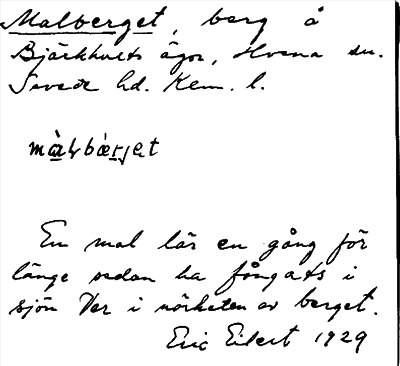 Malberget, berg å
Björkhults ägor, Hvena sn.
Sevede hd. Kem. l.
En mal lär en gång för
länge sedan ha fångats i
sjön Ver i närheten av berget.
Eric Eilert 1929